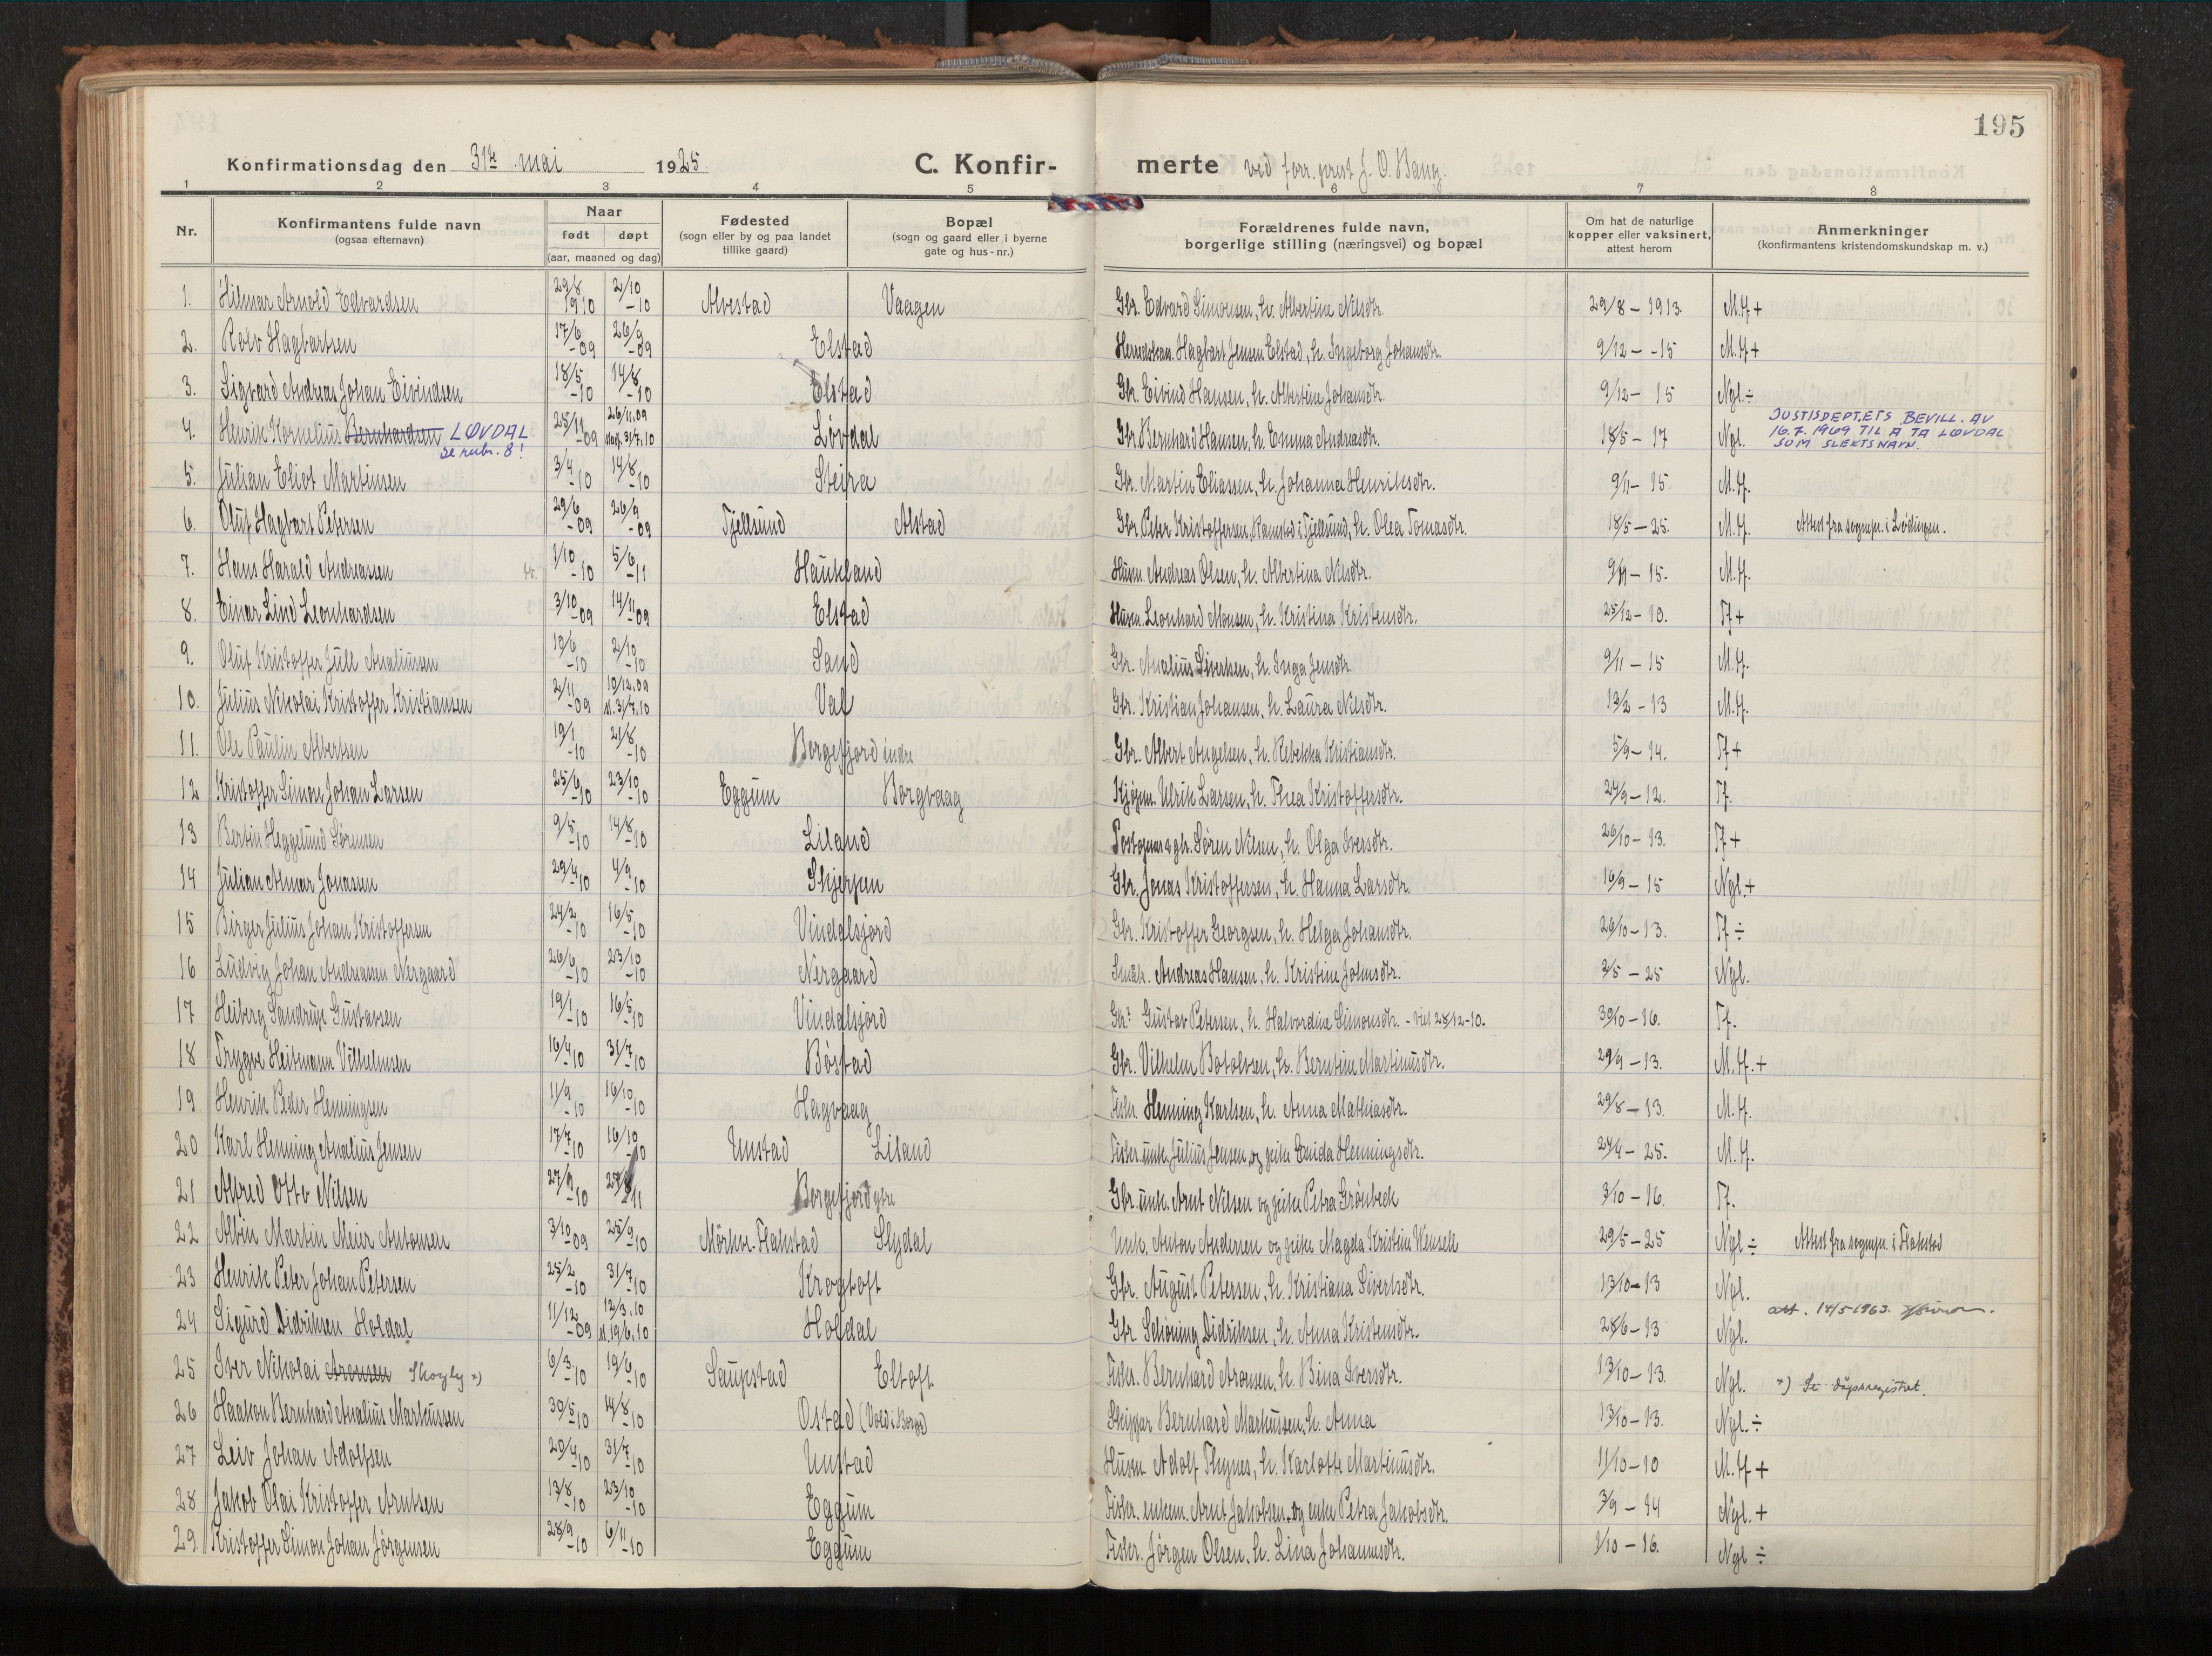 195
Konfirmationsdag den 31te mai 1925 C. Konfirmerte ved forr. prest J. O. Bang.
1 2 3 4 5 6 7 8
Nr. Konfirmantens fulde navn (ogsaa efternavn) Naar født døpt (aar, maaned og dag) Fødested (sogn eller by og paa landet tillike gaard) Bopæl (sogn og gaard eller i byerne gate og hus-nr.) Forældrenes fulde navn, borgerlige stilling (næringsvei) og bopæl Om hat de naturlige kopper eller vaksinert, attest herom Anmerkninger (konfirmantens kristendomskundskap m. v.)
1. Hilmar Arnold Edvardsen 29/8 1910 2/10 -10 Alvestad Vaagen Gbr. Edvard Simonsen, h. Albertine Nilsdtr. 29/8 - 1913. M.tf +
2. Rolv Hagbartsen 17/6 -09 26/9 -09 Elstad Hagbart Jensen Elstad, h. Ingeborg Johansdtr. 9/12 - -15 M.tf +
3. Sigvard Andreas Johan Eivindsen 18/5 -10 14/8 -10 Elstad Gbr. Eivind Hansen, h. Albertine Johansdtr. 9/12 - 15 Ngl. ÷
4. Henrik Kornelius Bernhardsen LØVDAL se rubr. 8! 25/11 -09 26/11.09 31/7.10 Løvdal Gbr. Bernhard Hansen, h. Emma Andreasdtr. 18/5 - 17 Ngl. JUSTISDEPT.ETS BEVILL. AV 16.7.1969 TIL Å TA LØVDAL SOM SLEKTSNAVN.
5. Julian Eliot Martinsen 3/4 -10 14/8 -10 Steira Gbr. Martin Eliassen, h. Johanna Henriksdtr. 9/11 - 15. M.tf.
6. Oluf Hagbart Petersen 29/6 -09 26/9 -09 Tjellsund Alstad Gbr. Peter Kristoffersen, i Tjellsund, h. Olea Tomasdtr. 18/5 - 25. M.tf. Attest fra sognepr. i Lødingen.
7. Hans Harald Andreassen 1/10 -10 5/6 -11 Haukland Husm. Andreas Olsen, h. Albertina Nilsdtr. 9/11 - 15. M.tf.
8. Einar Lind Leonhardsen 3/10 -09 14/11 -09 Elstad Husm. Leonhard Monsen, h. Kristina Kristensdtr. 25/12 - 10. Tf +
9. Oluf Kristoffer Jull Analiussen 19/6 -10 2/10 -10 Sand Gbr. Analius Sivertsen, h. Inga Jensdtr. 9/11 - 15 M.tf.
10. Julius Nikolai Kristoffer Kristiansen 2/11 -09 10/12.09 st. 31/7.10 Val Gbr. Kristian Johansen, h. Laura Nilsdtr. 13/2 - 13 M.tf.
11. Ole Paulin Albertsen 19/1 -10 21/8 -10 Borgefjord indre Gbr. Albert Angelsen, h. Rebekka Kristiansdtr. 5/9 - 14. Tf +
12 Kristoffer Simon Johan Larsen 25/6 -10 23/10 -10 Eggum Borgvaag Kjøpm. Ulrik Larsen, h. Thea Kristoffersdtr. 24/9 - 12. Tf.
13 Bertin Heggelund Sørensen 9/5 -10 14/8 -10 Liland Søren Nilsen, h. Olga Iversdtr. 26/10 - 13. Tf +
14 Julian Almar Jonassen 29/4 -10 4/9 -10 Skjerpen Gbr. Jonas Kristoffersen, h. Hanna Larsdtr. 16/9 - 15 Ngl. +
15 Birger Julius Johan Kristoffersen 24/2 -10 16/5 -10 Vindalsjord Gbr. Kristoffer Georgsen, h. Helga Johansdtr. 26/10 - 13. Tf ÷
16 Ludvig Johan Andreassen Nergaard 26/6 -10 23/10 -10 Nergaard Andreas Hansen, h. Kristine Johnsdtr. 3/5 - 25 Ngl.
17 Heiberg Sandrup Gustavsen 19/1 -10 16/5 -10 Vindalsjord Gustav Petersen, h. Halvardine Simonsdtr. - viet 28/12-10. 30/10 - 16. Tf.
18 Trygve Heitmann Vilhelmsen 16/4 -10 31/7 -10 Bøstad Gbr. Vilhelm Botolvsen, h. Berntine Martinusdtr. 29/9 - 13. M.tf. +
19 Henrik Peder Henningsen 11/9 -10 16/10 -10 Hagvaag Fisker. Henning Karlsen, h. Anna Mathiasdtr. 29/8 - 13. M.tf.
20 Karl Henning Analius Jensen 17/7 -10 16/10 -10 Unstad Liland Fisker. unk. Julius Jensen og pike Enida Henningsdtr. 24/4 - 25. M.tf.
21 Alfred Otto Nilsen 27/9 -10 -11 Borgefjord ytre Gbr. unk. Arnt Nilsen og pike Petra Grønbeck 3/10 - 16. Tf.
22 Albin Martin Meier Antonsen 3/10 -09 25/9 -10 Mørkve-Flakstad Slydal Unk. Anton Andersen og pike Magda Kristin Wensell 29/5 - 25 Ngl ÷ Attest fra sognepr. i Flakstad
23 Henrik Peter Johan Petersen 25/2 -10 31/7 -10 Krogtoft Gbr. August Petersen, h. Kristiana Sivertsdtr. 13/10 - 13 Ngl.
24 Sigurd Didriksen Holdal 11/12 -09 12/3.10 st. 19/6.10 Holdal Gbr. Schøning Didriksen, h. Anna Kristensdtr. 28/6 - 13 Ngl. att. 14/5 1963.
25 Iver Nikolai Aronsen Skogly *) 6/3 -10 19/6 -10 Saupstad Eltoft Fisker. Bernhard Aronsen, h. Bina Iversdtr. 13/10 - 13. Ngl. *) Se dåpsregistret.
26 Haakon Bernhard Analius Markussen 30/5 -10 14/8 -10 Ostad (Vold i Borge) Skipper Bernhard Markussen, h. Anna 13/10 - 13. Ngl. ÷
27 Leiv Johan Adolfsen 20/4 -10 31/7 -10 Unstad Husm. Adolf Thynes, h. Karlotte Martinusdtr. 11/10 - 10 M.tf +
28 Jakob Olai Kristoffer Arntsen 13/8 -10 23/10 -10 Eggum Fisker. enkem. Arnt Jakobsen og enke Petra Jakobsdtr. 3/9 - 14 Ngl. +
29 Kristoffer Simon Johan Jørgensen 28/9 -10 6/11 -10 Eggum Fisker. Jørgen Olsen, h. Lina Johannesdtr. 1/10 - 16. Ngl ÷